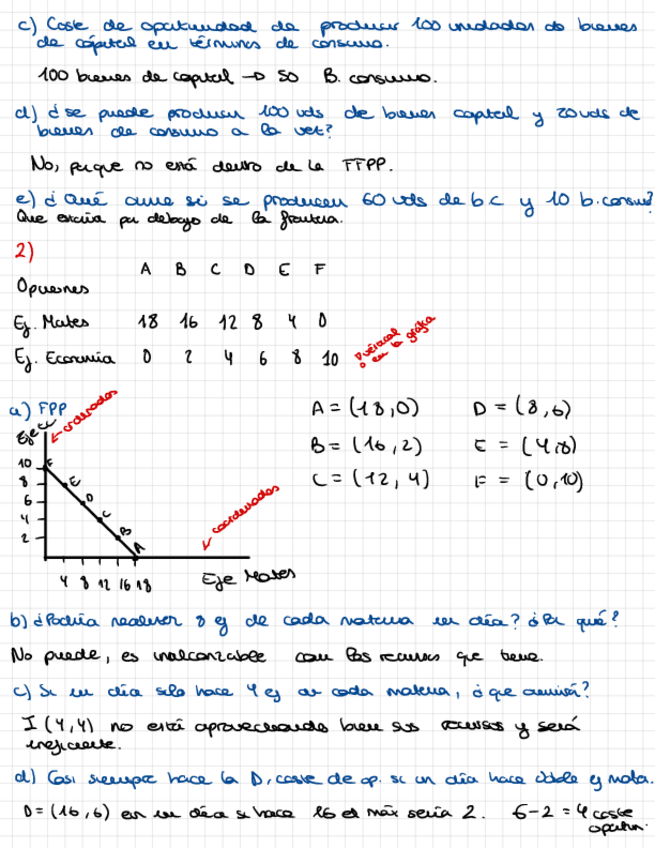 c) Coste de oportunidad de producir 100 unidades de bienes
de cápital en términos de consumo.
100 bienes de capital → 50 B. consumo.
d) ¿se puede producir 100 uds de bienes capital y 20 uds de
bienes de consumo a la vez?
No, porque no está dentro de la FFPP.
e) ¿Qué ocurre si se producen 60 uds de b.c y 10 b. consumo?
Que estaría por debajo de la frontera.
2)
A B C D E F
Opciones
Ej. Mates 18 16 12 8 4 0
Ej. Economía 0 2 4 6 8 10
en la gráfica
a) FPP
Eje Ec
ordenadas
10 F
8 E
6 D
4 C
2 B
A
4 8 12 16 18
Eje Mates
coordenadas
A = (18,0) D = (8,6)
B = (16,2) E = (4,8)
C = (12,4) F = (0,10)
b) ¿Podría resolver 8 ej de cada materia un día? ¿Por qué?
No puede, es inalcanzable con los recursos que tiene.
c) Si un día solo hace 4 ej de cada materia, ¿que ocurrirá?
I (4,4) no está aprovechando bien sus recursos y será
ineficiente.
d) Casi siempre hace la D, coste de op. si un día hace doble ej mates.
D = (16,6) en un día si hace 16 el máx sería 2. 6-2 = 4 coste
oportun.